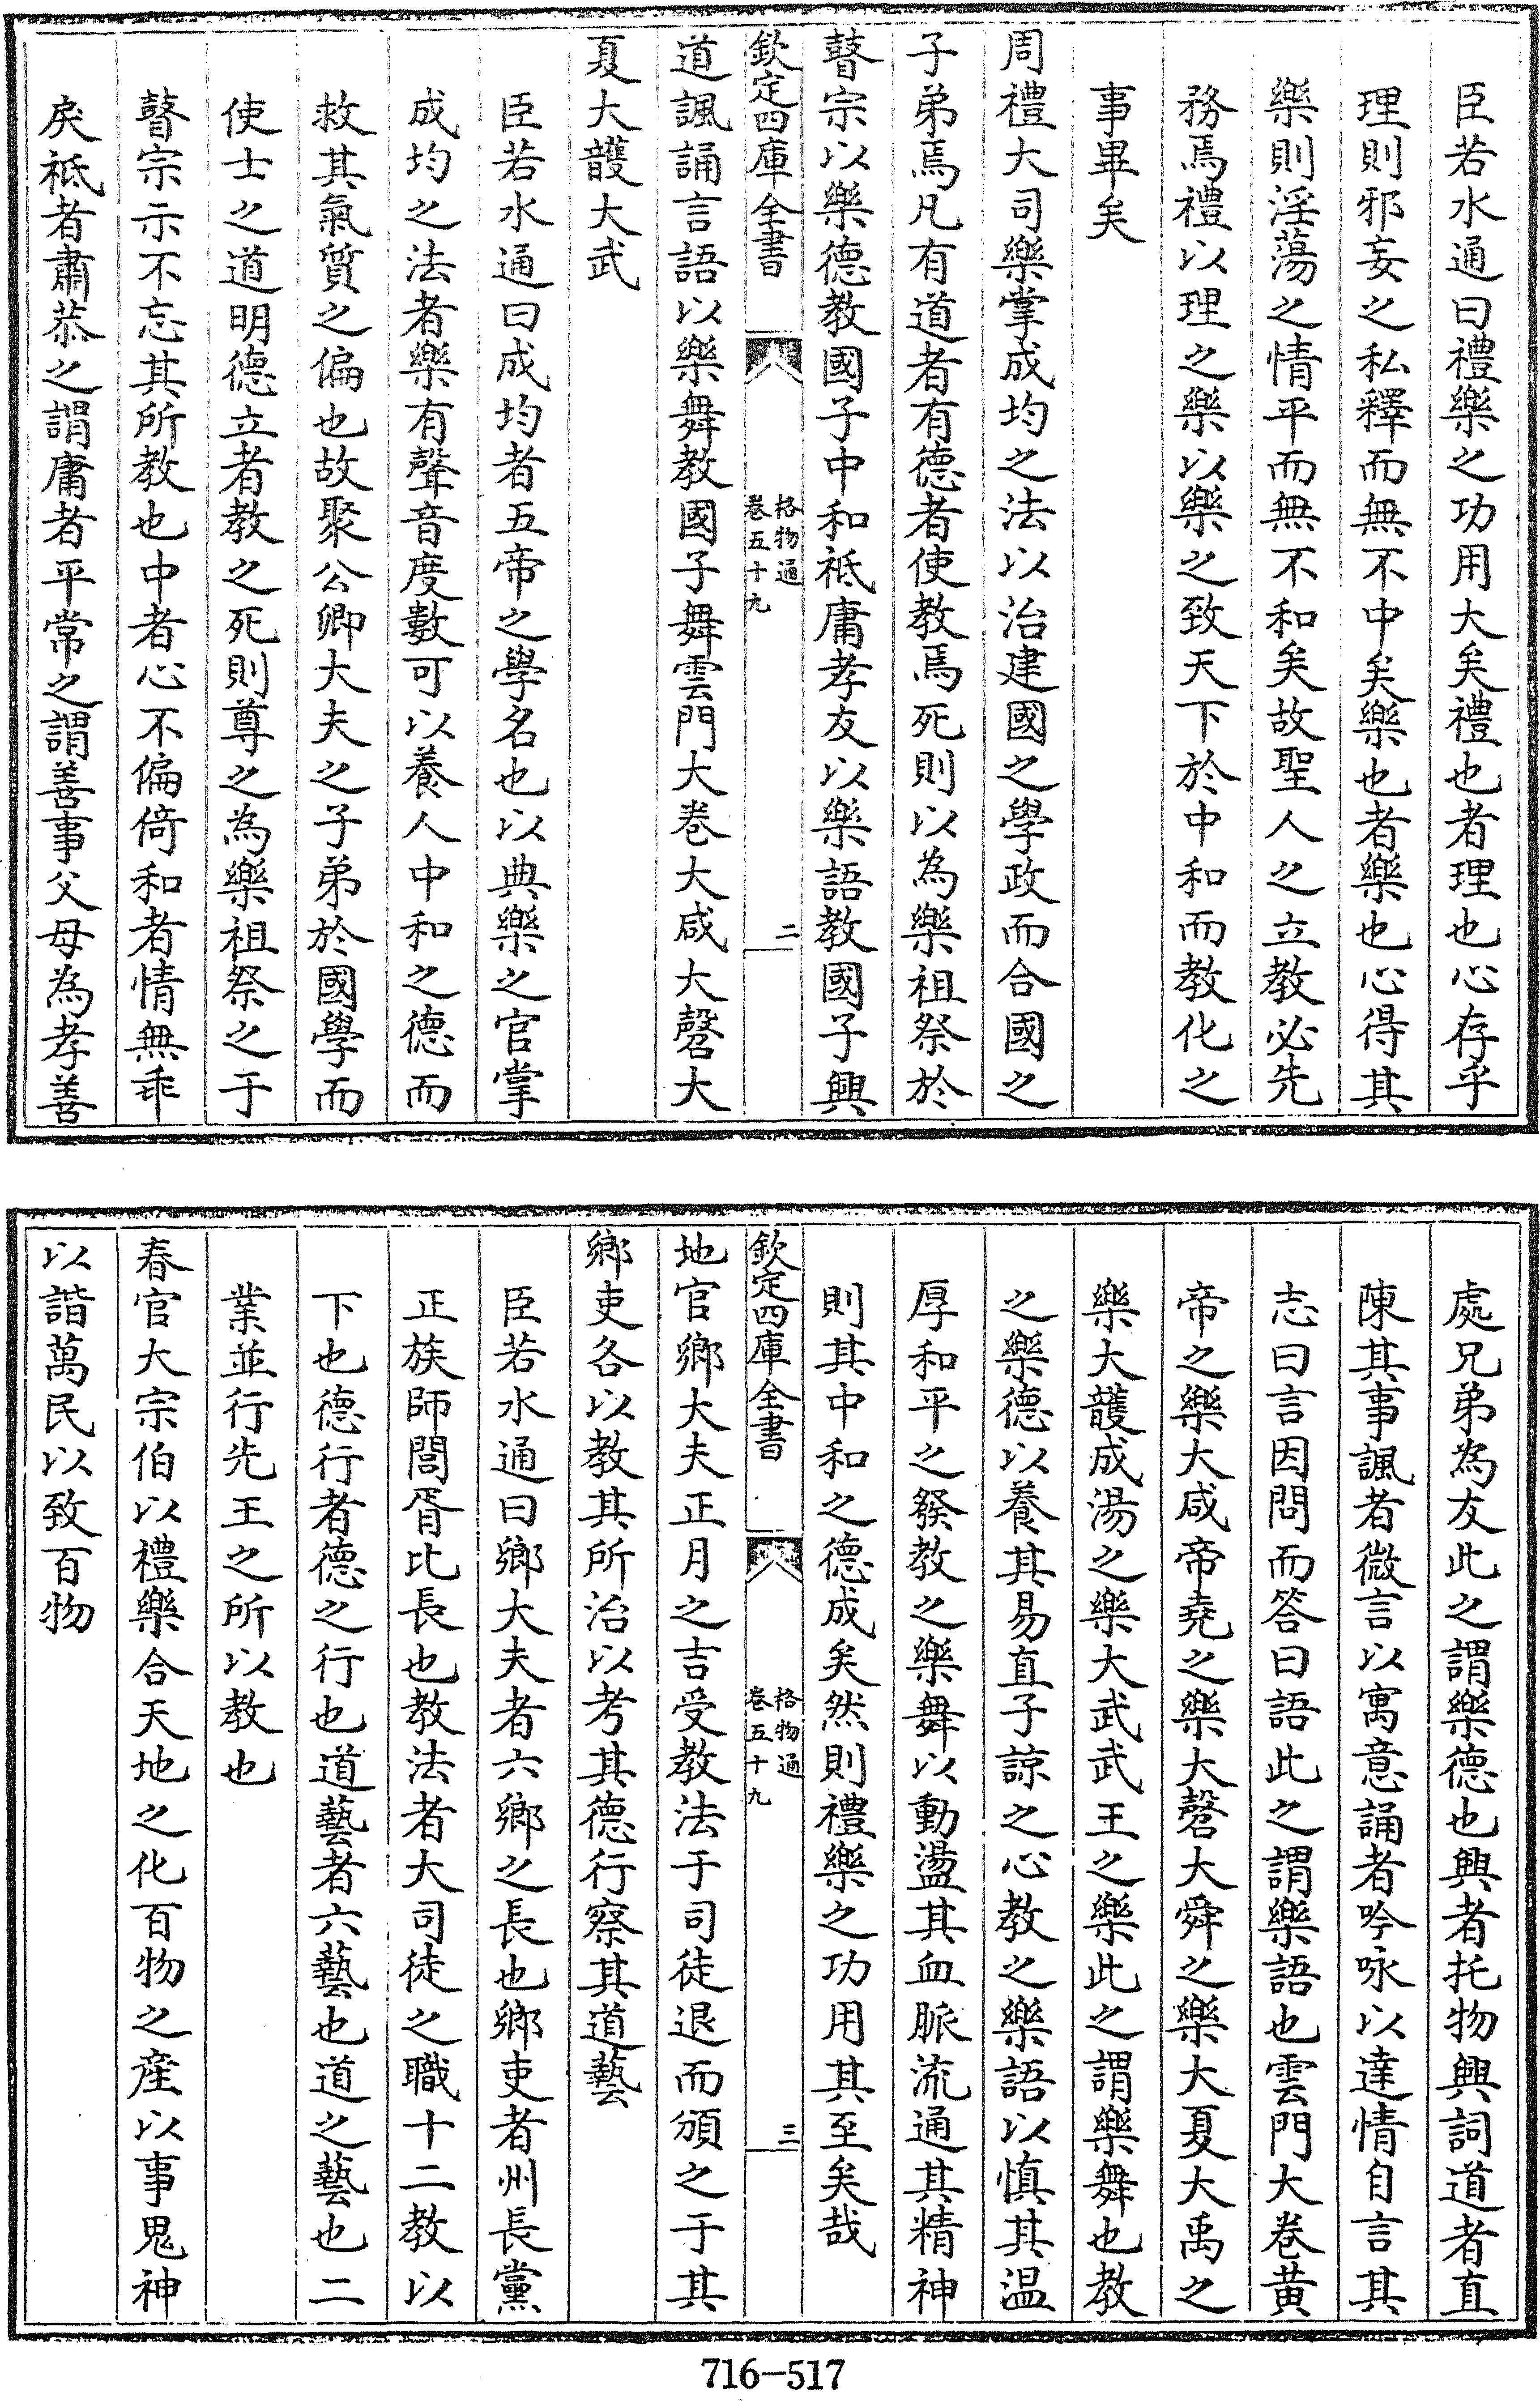 臣若水通曰禮樂之功用大矣禮也者理也心存乎
理則邪妄之私釋而無不中矣樂也者樂也心得其
樂則淫蕩之情平而無不和矣故聖人之立教必先
務焉禮以理之樂以樂之致天下於中和而教化之
事畢矣
周禮大司樂掌成均之法以治建國之學政而合國之
子弟焉凡有道者有德者使教焉死則以為樂祖祭於
瞽宗以樂德教國子中和祗庸孝友以樂語教國子興
欽定四庫全書
格物通
卷五十九
二
道諷誦言語以樂舞教國子舞雲門大卷大咸大磬大
夏大頀大武
臣若水通曰成均者五帝之學名也以典樂之官掌
成均之法者樂有聲音度數可以養人中和之德而
救其氣質之偏也故聚公卿大夫之子弟於國學而
使士之道明德立者教之死則尊之為樂祖祭之于
瞽宗示不忘其所教也中者心不偏倚和者情無乖
戾祗者肅恭之謂庸者平常之謂善事父母為孝善
處兄弟為友此之謂樂德也興者托物興詞道者直
陳其事諷者微言以寓意誦者吟咏以達情自言其
志曰言因問而答曰語此之謂樂語也雲門大卷黃
帝之樂大咸帝堯之樂大磬大舜之樂大夏大禹之
樂大頀成湯之樂大武武王之樂此之謂樂舞也教
之樂德以養其易直子諒之心教之樂語以慎其温
厚和平之發教之樂舞以動盪其血脈流通其精神
則其中和之德成矣然則禮樂之功用其至矣哉
欽定四庫全書
格物通
卷五十九
三
地官鄉大夫正月之吉受教法于司徒退而頒之于其
鄉吏各以教其所治以考其德行察其道藝
臣若水通曰鄉大夫者六鄉之長也鄉吏者州長黨
正族師閭胥比長也教法者大司徒之職十二教以
下也德行者德之行也道藝者六藝也道之藝也二
業並行先王之所以教也
春官大宗伯以禮樂合天地之化百物之產以事鬼神
以諧萬民以致百物
716-517